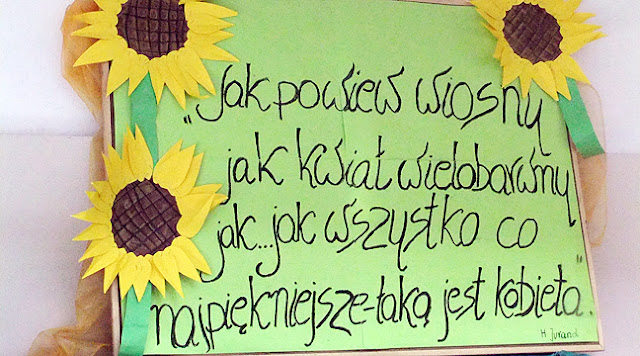 „Jak powiew wiosny
jak kwiat wielobarwny
jak...jak wszystko co
najpiękniejsze-taką jest kobieta".
H Jurand